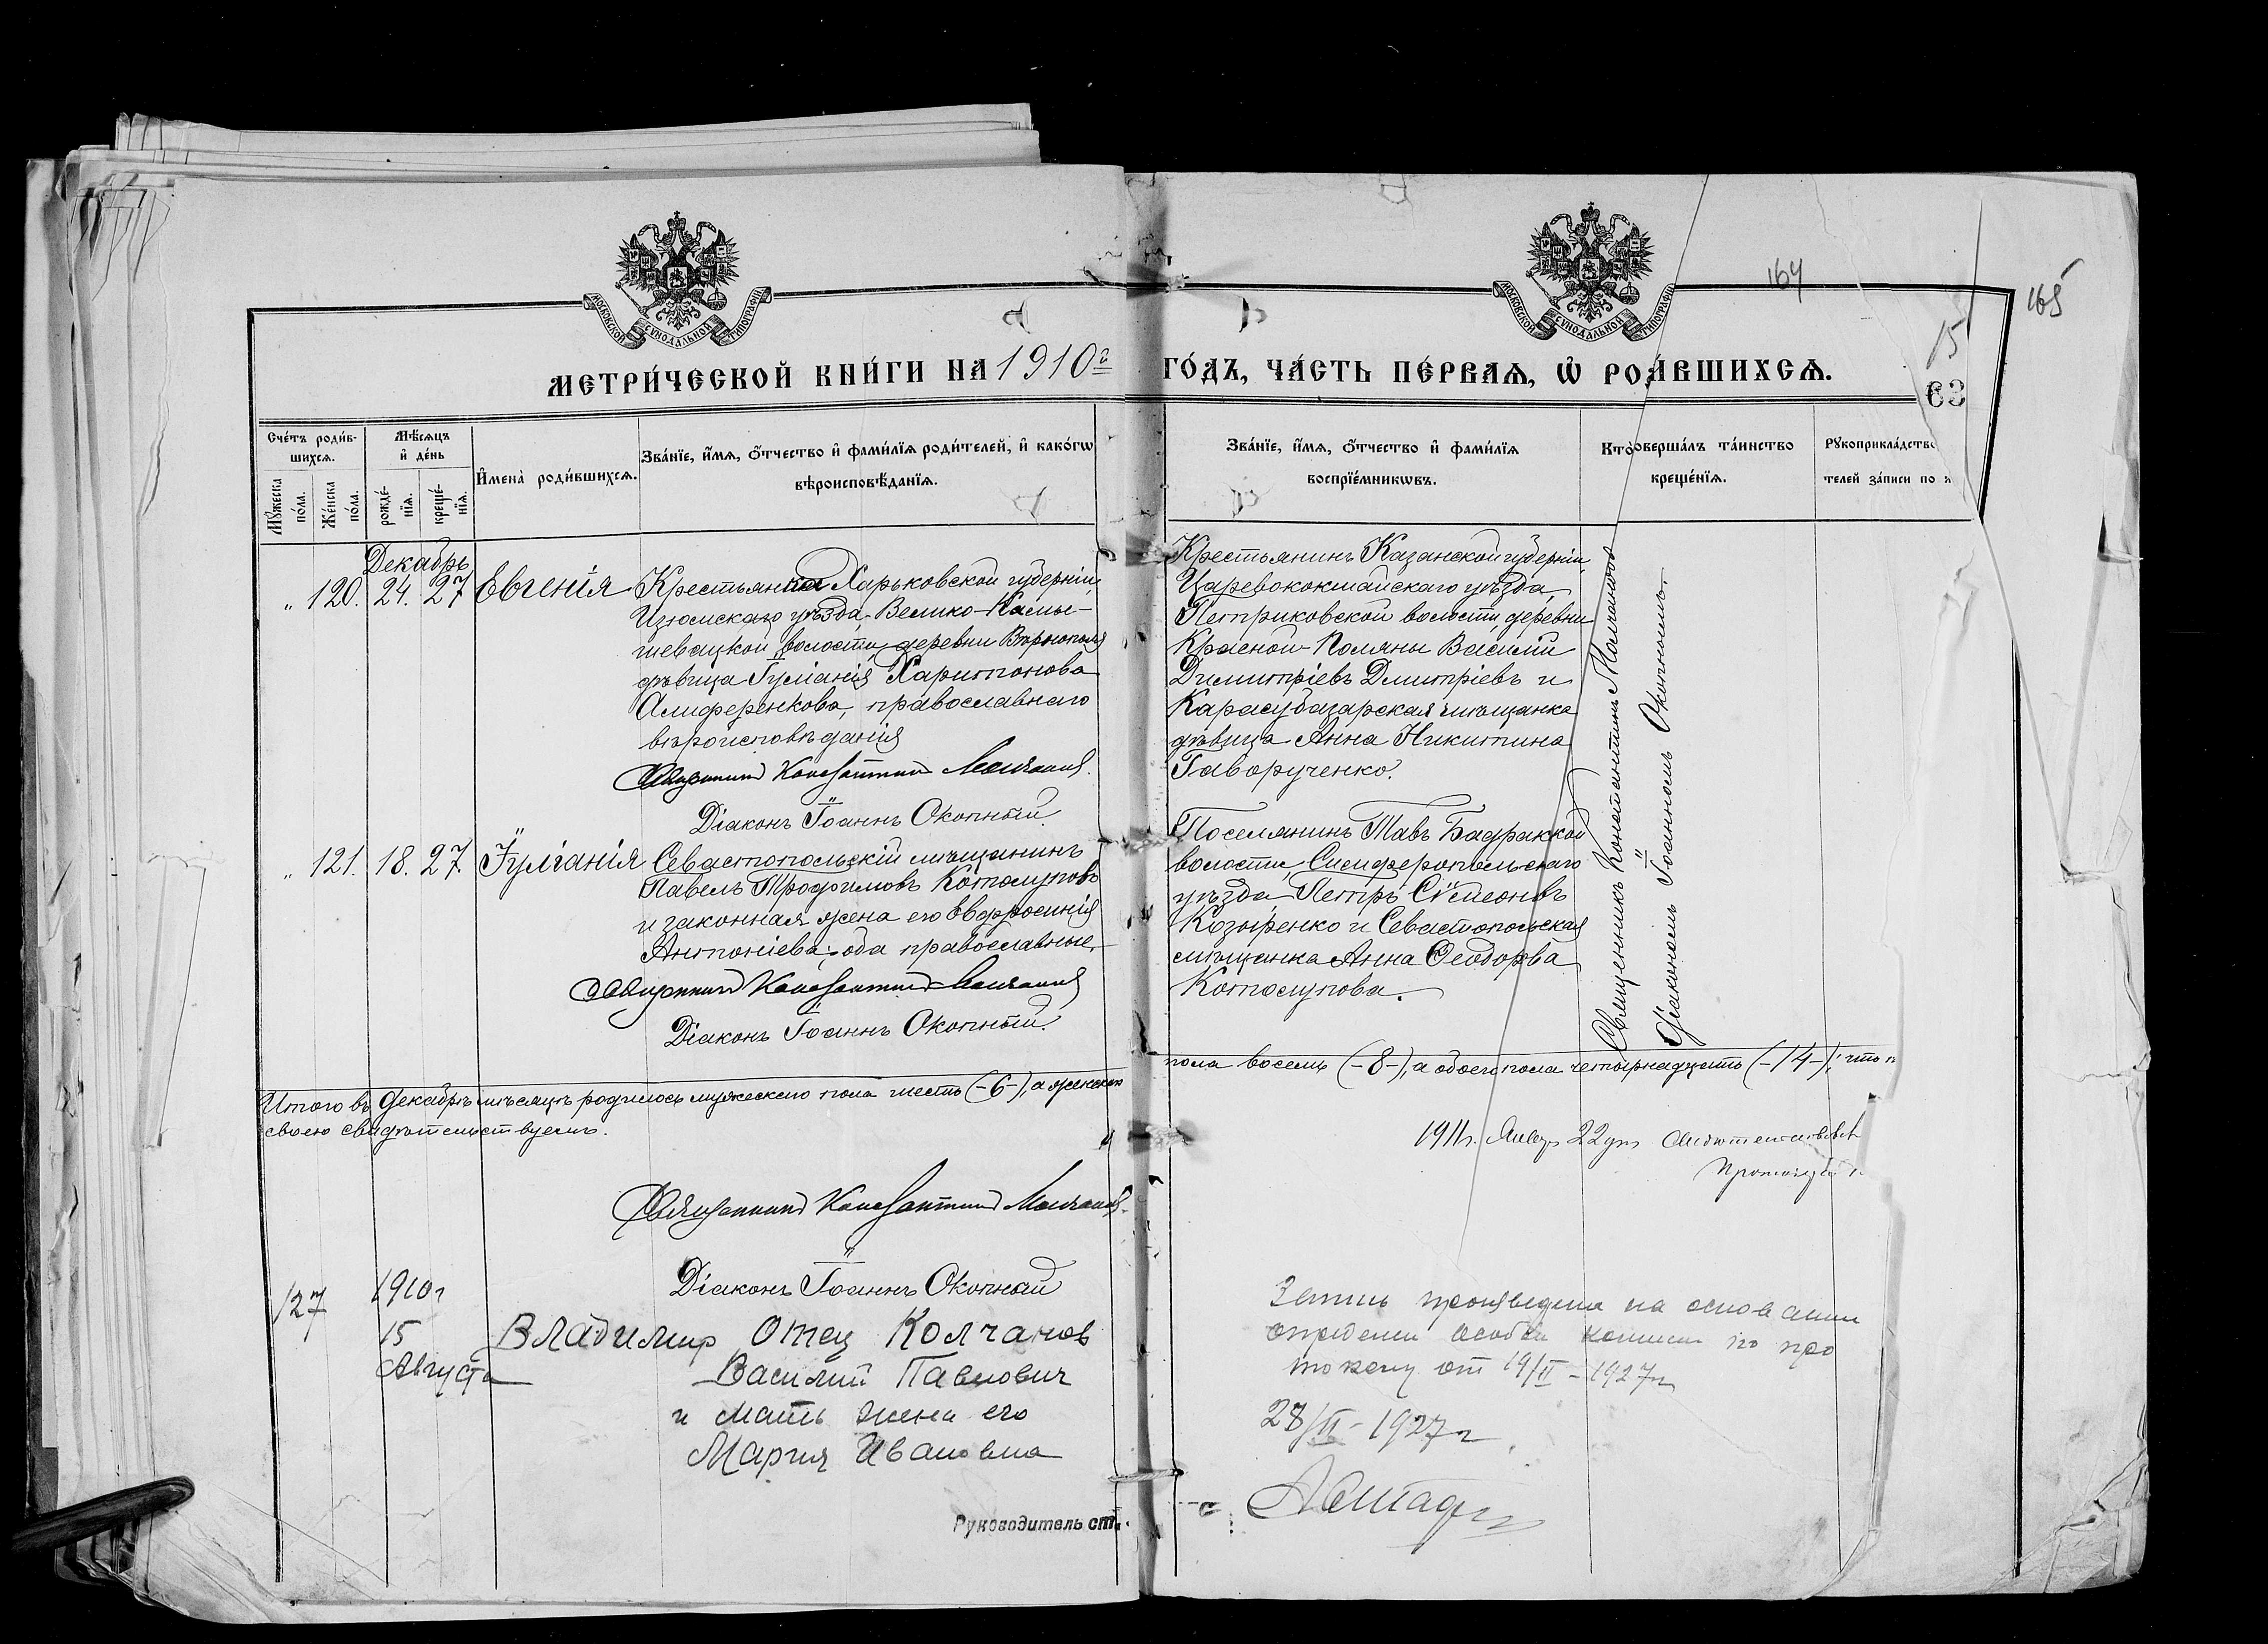 164
165
15
63
МОСКОВСКОЙ СУНОДАЛЬНОЙ ТИПОГРАФІИ
МОСКОВСКОЙ СУНОДАЛЬНОЙ ТИПОГРАФІИ
МЕТРИ́ЧЕСКОЙ КНИ́ГИ НА 1910 г. ГО́ДЪ, ЧА́СТЬ ПЕ́РВАѦ, Ѡ҆ РО
ВШИХСѦ.
Сче́тъ роди́в-
шихсѧ.
Мꙋ́жеска по́ла.
Же́нска по́ла.
Мѣ́сѧцъ и҆ де́нь
рожде́-нїѧ.
креще́-нїѧ.
И҆мена̀ роди́вшихсѧ.
Зва́нїе, и҆́мѧ, ѻ҆́тчество и҆ фами́лїѧ роди́телей, и҆ како́гѡ
вѣроисповѣ́данїѧ.
Зва́нїе, и҆́мѧ, ѻ҆́тчество и҆ фами́лїѧ
воспрїе́мникѡвъ.
Кто̀
оверша́лъ та́инство
креще́нїѧ.
Рꙋкоприкла́дство
телей за́писи по
Декабрь
120. 24. 27 Евгенія
Крестьянка Харьковской губерніи,
Изюмскаго уѣзда, Велико-Камы-
шевацкой волости, деревни
дѣвица Іуліанія Харитонова
Алиференкова, православнаго
вѣроисповѣданія
Священникъ Константинъ Молчановъ.
Діаконъ Іоаннъ Окопный.
Крестьянинъ Казанской губерніи,
Царевококшайскаго уѣзда,
Петриковской волости, деревни
Красной-Поляны Василій
Димитріевъ Дмитріевъ и
Карасубазарская мѣщанка
дѣвица Анна Никитина
Гаворученко.
121. 18. 27. Іуліанія
Севастопольскій мѣщанинъ
Павелъ Трофимовъ Котолуповъ
и законная жена его Евфросинія
Антоніева; оба православные.
Священникъ Константинъ Молчановъ
Діаконъ Іоаннъ Окопный.
Поселянинъ Тавъ Бадракской
волости, Симферопольскаго
уѣзда Петръ Сѵмеоновъ
Козыренко и Севастопольская
мѣщанка Анна Ѳеодорова
Котолупова.
Священникъ Константинъ Молчановъ
Діакономъ Іоанномъ Окопнымъ.
Итого въ декабрѣ мѣсяцѣ родилось мужескаго пола шесть (-6-), а женскаго
пола восемь (-8-), а обоего пола четырнадцать (-14-); что
своею свидѣтельствуемъ.
1911г. Янвр 22 дня
Священникъ Константинъ Молчановъ.
Діаконъ Іоаннъ Окопный
127 1910г
15
Августа
Владимир Отец Колчанов
Василий Павлович
и мать жена его
Мария Ивановна
Запись произведена на основании
определен особой комиссии по про
токолу от 19/II - 1927г
28/II - 1927г
Руководитель ст.